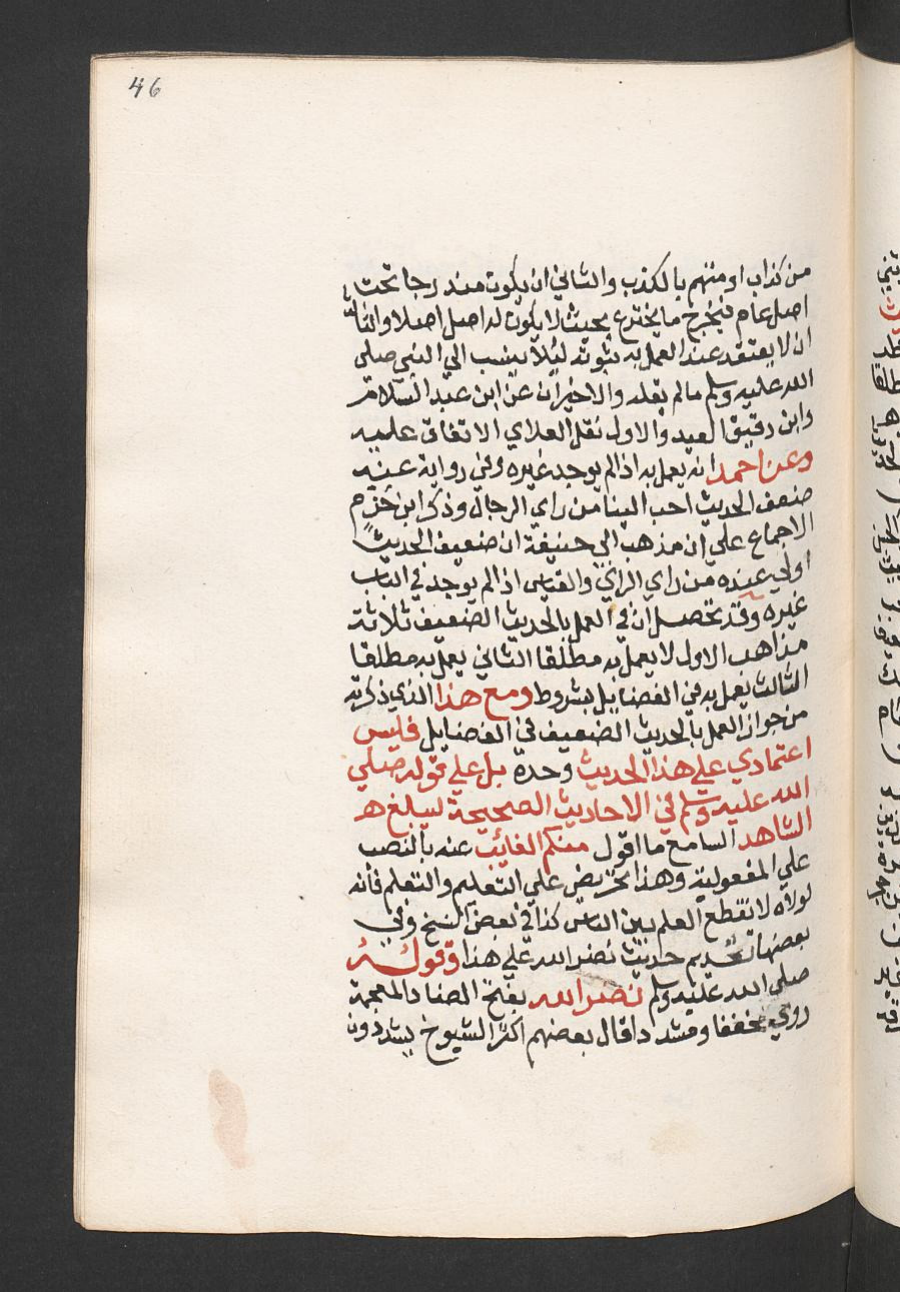 46
من كذاب او متهم بالكذب والثاني ان يكون مندرجا تحت
اصل عام فيخرج ما يخترع بحيث لا يكون له اصل اصلا والثالث
ان لا يعتقد عند العمل به ثبوته ليلا ينسب الي النبي صلى
الله عليه وسلم مالم يقله والاخيران عن ابن عبد السلام
وابن دقيق العيد والاول نقل العلاي الاتفاق عليه
وعن احمد انه يعمل به اذا لم يوجد غيره وفي رواية عنه
ضعف الحديث احب الينا من راي الرجال وذكر ابن حزم
الاجماع علي ان مذهب ابي حنيفة ان ضعيف الحديث
اولي عنده من راي الراي والقياس اذا لم يوجد في الباب
غيره وقد تحصل ان في العمل بالحديث الضعيف ثلاثة
مذاهب الاول لا يعمل به مطلقا الثاني يعمل به مطلقا
الثالث يعمل به في الفضايل بشروط ومع هذا الذي ذكرته
من جواز العمل بالحديث الضعيف في الفضايل فليس
اعتمادي علي هذا الحديث وحده بل علي قوله صلي
الله عليه وسلم في الاحاديث الصحيحة ليبلغ هـ
الشاهد السامع ما اقول منكم الغائب عنه بالنصب
علي المفعولية وهذا تحريض علي التعليم والتعلم فانه
لولاه لانقطع العلم بين الناس كذا في بعض النسخ وفي
بعضها تقديم حديث نضر الله علي هذا وقوله
صلى الله عليه وسلم نضر الله بفتح الضاد المعجمة
روي مخففا ومشددا قال بعضهم اكثر الشيوخ يشددون